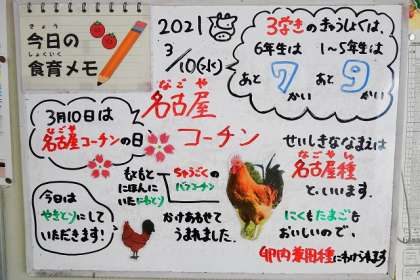 きょう
今日の
しょくいく
食育メモ
2021
3/10(水)
3学きのきゅうしょくは、
6年生は
あと7かい
1～5年生は
あと9かい
3月10日は
なごや
名古屋コーチンの日
なごや
名古屋
コーチン
せいしきななまえは
なごやしゅ
名古屋種
と、いいます。
もともと
にほんに
いたにわとり
ちゅうごくの
バフコーチン
かけあわせて
うまれました。
にくもたまごも
おいしいので、
卵肉兼用種にわけられます
今日は
やきとりにして
いただきます!